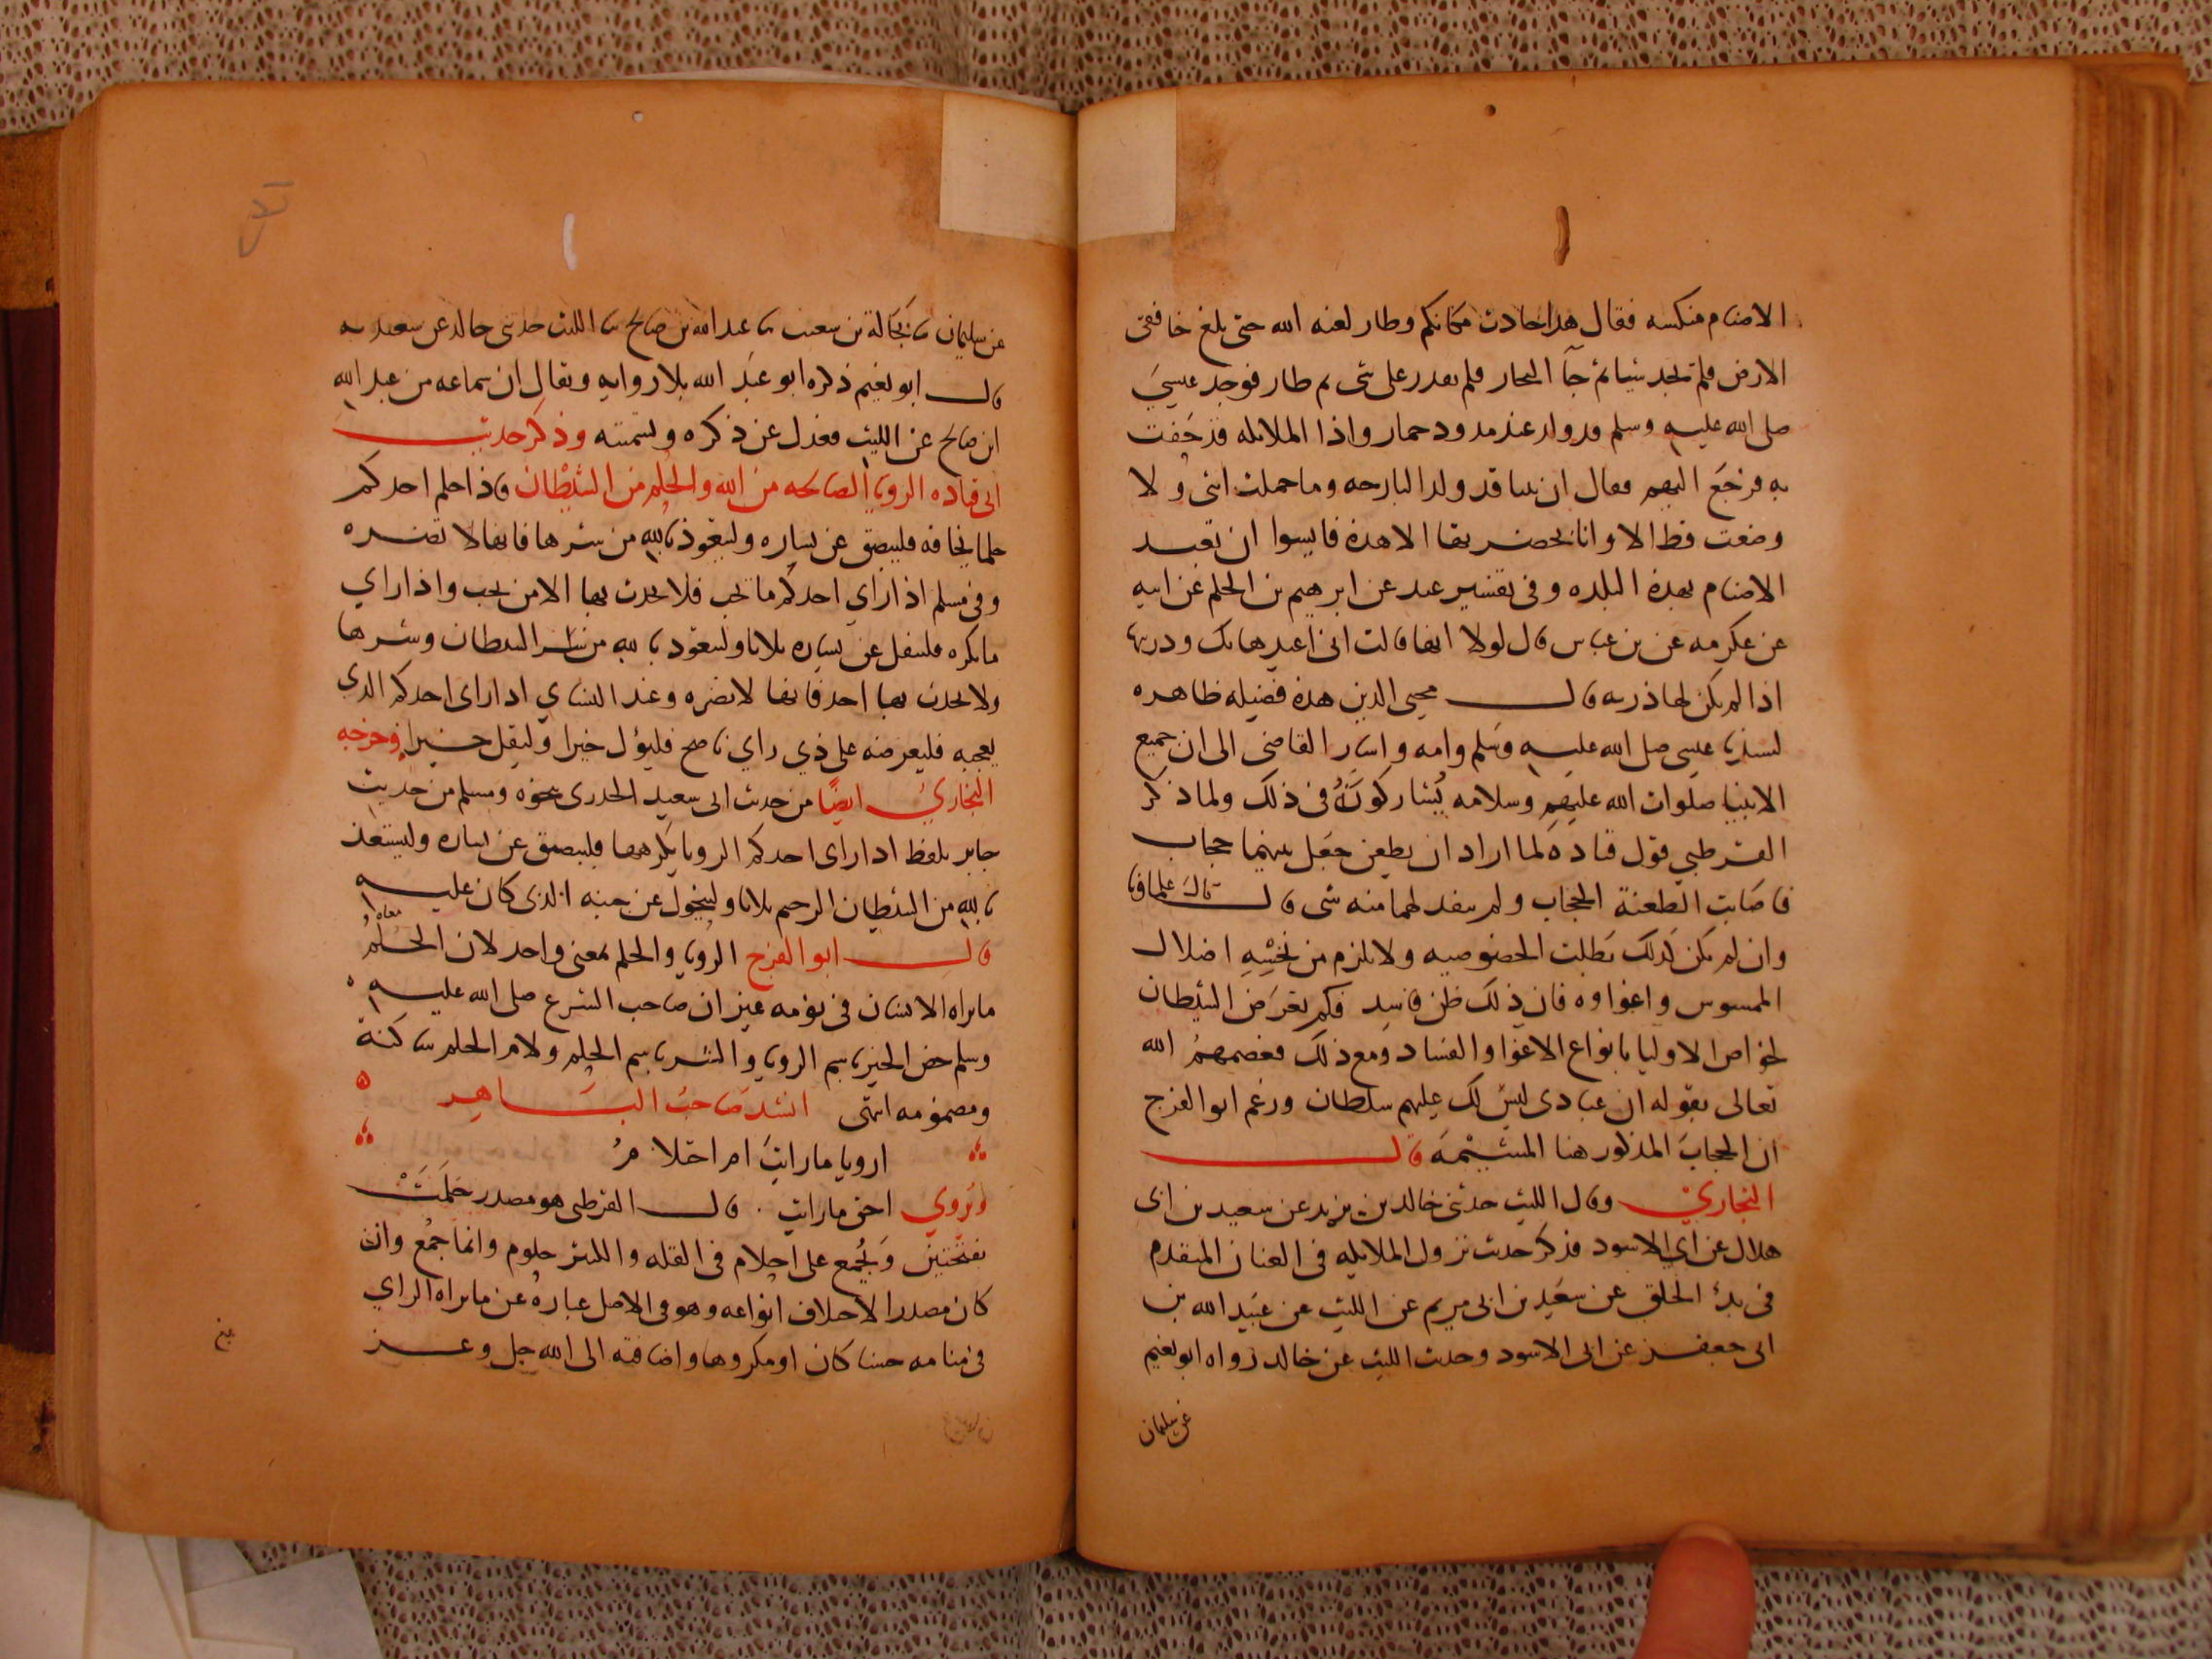 الاصنام منكسه فقال هذا حادث مكانكم وطار لعنه الله حتى بلغ خافقى
الارض فلم يجد شيا ثم جآ البحار فلم يقدر على شى ثم طار فوجد عيسى
صلى الله عليه وسلم قد ولد عند مدود حمار واذا الملائكه قد حفت
به فرجع اليهم فقال ان نبيا قد ولد البارحه وما حملت انثى ولا
وضعت قط الا وانا بحضرتها الا هذه فايسوا ان تعبد
الاصنام بهذه البلده وفى تفسير عبد عن ابرهيم بن الحكم عن ابيه
عن عكرمه عن بن عباس قال لولا انها قالت انى اعيذها بك وذريتها
اذا لم يكن لها ذريه قال محيى الدين هذه فضيله ظاهره
لسيدنا عيسى صلى الله عليه وسلم وامه واشار القاضى الى ان جميع
الانبيا صلوات الله عليهم وسلامه يشاركونه فى ذلك ولما ذكر
القرطبي قول قتاده لما اراد ان يطعن جعل بينهما حجاب
فاصابت الطعنة الحجاب ولم ينفد لهما منه شى قال قال علماونا
وان لم يكن كذلك بطلت الخصوصيه ولا يلزم من نخسه اضلال
الممسوس واغواوه فان ذلك ظن فاسد فكم تعرض الشيطان
لخواص الاوليا بانواع الاغوا والفساد ومع ذلك فعصمهم الله
تعالى بقوله ان عبادى ليس لك عليهم سلطان وزعم ابو الفرج
ان الحجاب المذكور هنا المشيمة قال
البخاري وقال الليث حدثنى خالد بن يزيد عن سعيد بن ابى
هلال عن ابي الاسود فذكر حديث نزول الملائكه فى العنان المتقدم
فى بدء الخلق عن سعيد بن ابى مريم عن الليث عن عبيد الله بن
ابى جعفر عن ابى الاسود وحديث الليث عن خالد رواه ابو نعيم
عن سليمان
عن سليمان نا بن سعيب نا عبد الله بن صالح نا الليث حدثنى خالد عن سعيد به
قال ابو نعيم ذكره ابو عبد الله بلا روايه ويقال ان سماعه من عبد الله
ابن صالح عن الليث فعدل عن ذكره وتسميته وذكر حديث
ابى قتاده الرويا الصالحه من الله والحلم من الشيطان فاذا حلم احدكم
حلما يخافه فليبصق عن يساره وليتعوذ بالله من شرها فانها لا تضره
وفى مسلم اذا راي احدكم ما يحب فلا يحدث بها الا من يحب واذا راي
ما يكره فليتفل عن يساره ثلاثا وليتعوذ بالله من شر الشيطان وشرها
ولا يحدث بها احد فانها لا تضره وعند النساي اذا راى احدكم الذي
يعجبه فليعرضه على ذي راي ناصح فليؤل خيرا وليقل خيرا وخرجه
البخاري ايضا من حديث ابى سعيد الخدرى نحوه ومسلم من حديث
جابر بلفظ اذا راى احدكم الرويا يكرهها فليبصق عن يساره وليستعذ
بالله من الشيطان الرجيم ثلاثا وليتحول عن جنبه الذى كان عليه
قال ابو الفرج الرويا والحلم بمعنى واحد لان الحلم معناه
ما يراه الانسان فى نومه غير ان صاحب الشرع صلى الله عليه
وسلم خص الخير باسم الرويا والشر باسم الحلم ولام الحلم ساكنة
ومضمومه انتهى انشد صاحب الباهر
ارويا ما رايت ام احتلام
ويروي احق ما رايت . قال القرطبى هو مصدر حلمت
بفتحتين ويجمع على احلام فى القله والكثر حلوم وانما جمع وان
كان مصدرا لاختلاف انواعه وهو فى الاصل عبارة عن ما يراه الراي
فى منامه حسنا كان او مكروها واضافته الى الله جل وعز